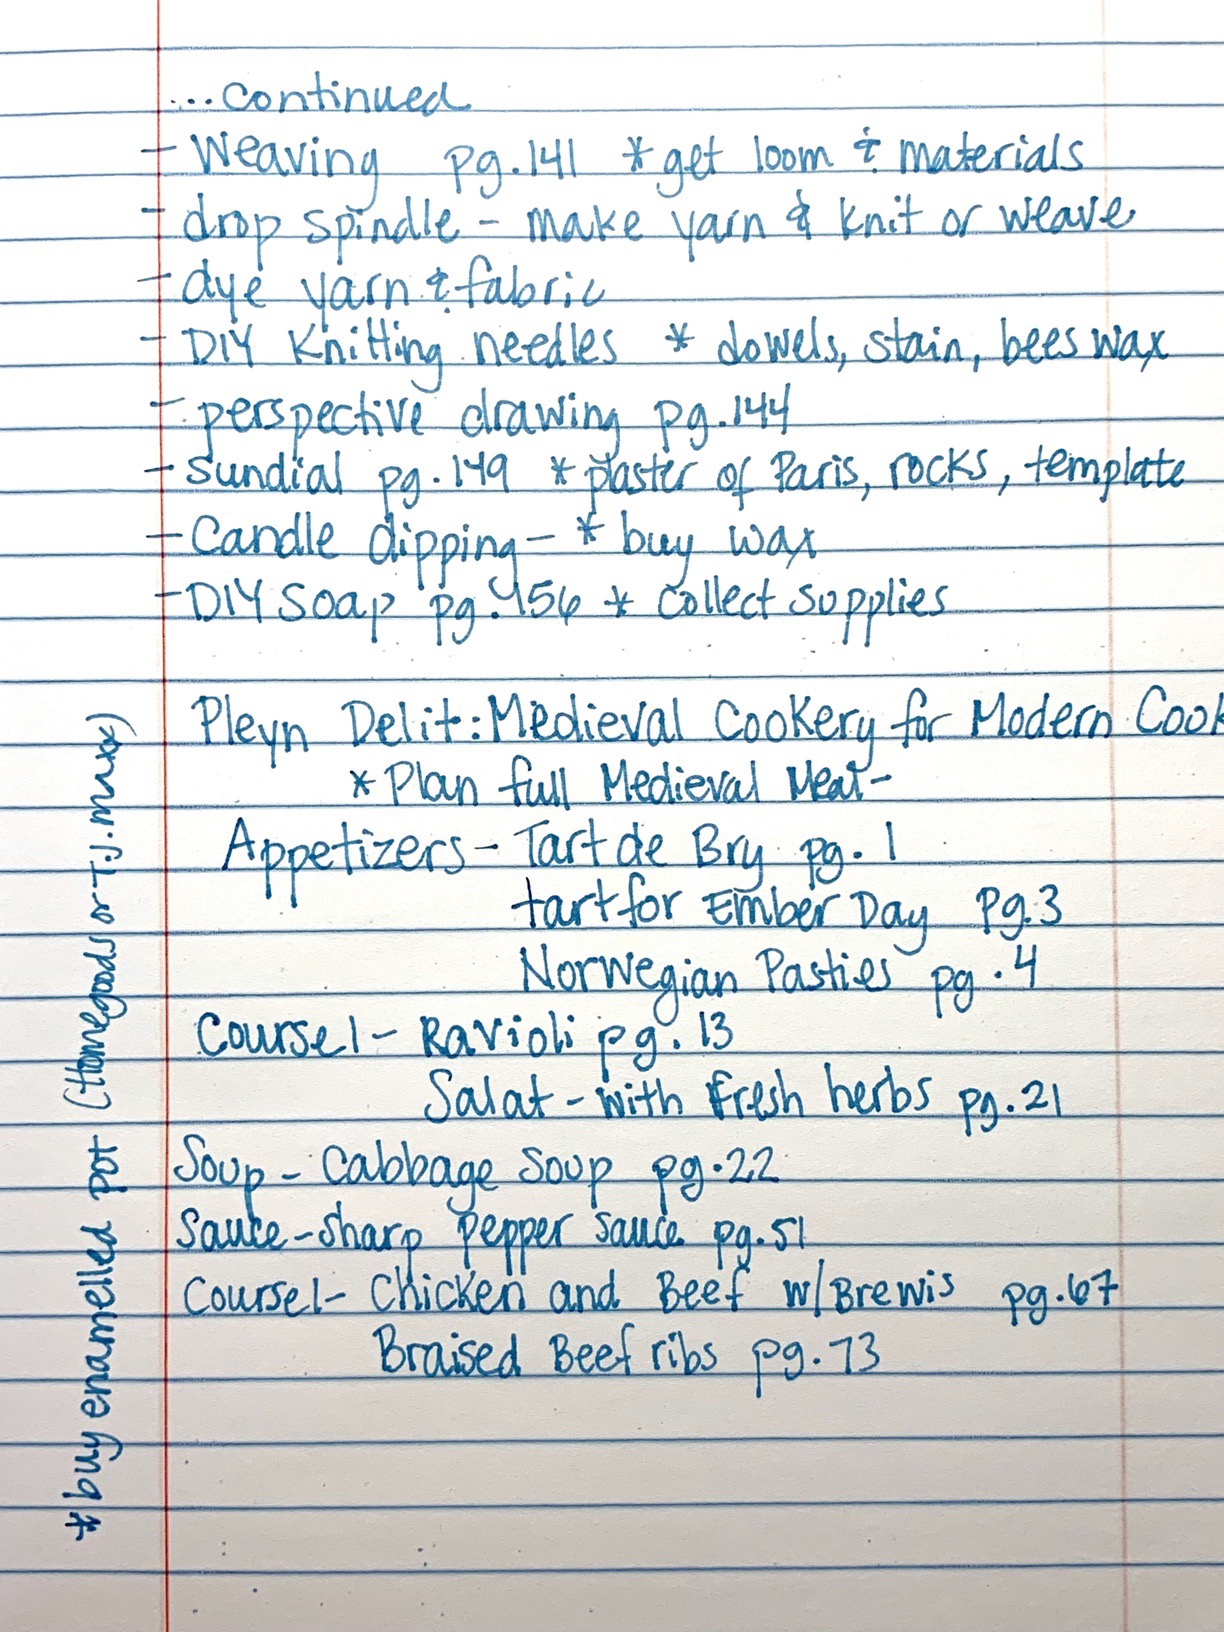 ...continued
- Weaving pg.141 *get loom & materials
- drop spindle - make yarn & knit or weave
- dye yarn & fabric
- DIY Knitting needles * dowels, stain, bees wax
- perspective drawing pg.144
- Sundial pg.149 * plaster of Paris, rocks, template
- Candle dipping - * buy wax
- DIY Soap pg.156 * collect supplies
Pleyn Delit: Medieval Cookery for Modern Cook
* Plan full Medieval Meal -
Appetizers - Tart de Bry pg. 1
tart for Ember Day pg.3
Norwegian Pasties pg.4
Course 1 - Ravioli pg. 13
Salat - with fresh herbs pg.21
Soup - Cabbage Soup pg.22
Sauce - Sharp Pepper Sauce pg.51
Course 1 - Chicken and Beef w/ Brewis pg.67
Braised Beef ribs pg.73
* buy enamelled pot (Homegoods or T.J. maxx)